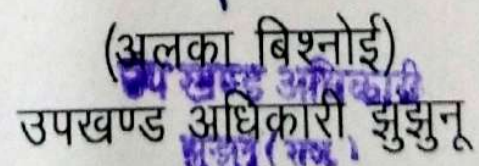 (अलका बिश्नोई)
उप खण्ड अधिकारी
उपखण्ड अधिकारी झुंझुनू
झुन्झुनू (राज.)